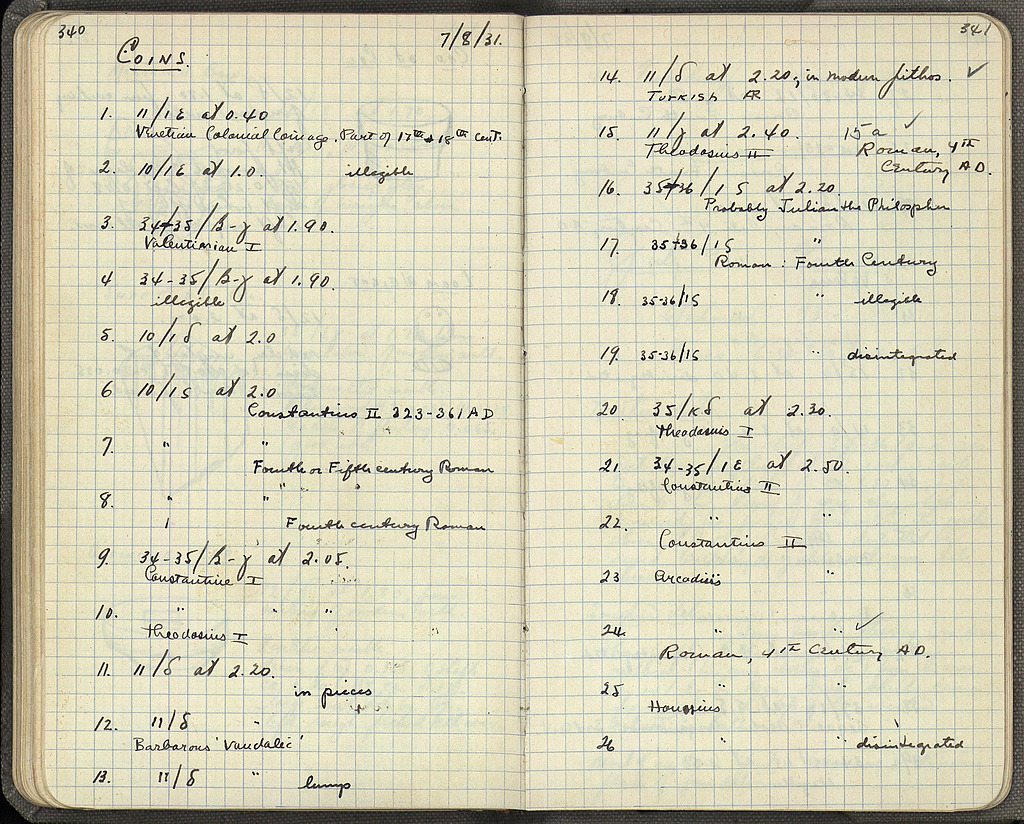 340
7/8/31.
COINS.
1. 11/1ε at 0.40
Venetian Colonial Coinage. Part of 17th + 18th cent.
2. 10/1ε at 1.0. illegible
3. 34+35/β-γ at 1.90.
Valentinian I
4 34-35/β-γ at 1.90.
illegible
5. 10/1δ at 2.0
6 10/1ς at 2.0
Constantius II 323-361 AD
7. " "
Fourth or Fifth century Roman
8. " " "
Fourth century Roman
9. 34-35/β-γ at 2.05.
Constantine I
10. " " "
Theodosius I
11. 11/δ at 2.20.
in pieces
12. 11/δ "
Barbarous 'Vandalic'
13. 11/δ " lumps
341
14. 11/δ at 2.20; in modern pithos. ✓
TURKISH AR
15. 11/γ at 2.40. 15a ✓
Theodosius II Roman, 4TH
Century A.D.
16. 35+36/1ς at 2.20
Probably Julian the Philospher
17. 35+36/1ς "
Roman: Fourth Century
18. 35-36/1ς " illegible
19. 35-36/1ς " disintegrated
20. 35/κδ at 2.30.
Theodosius I
21. 34-35/1ε at 2.50.
Constantius II
22. " "
Constantius II
23 Arcadius "
24. " " ✓
Roman, 4TH Century AD.
25 " "
Honorius
26 " " disintegrated